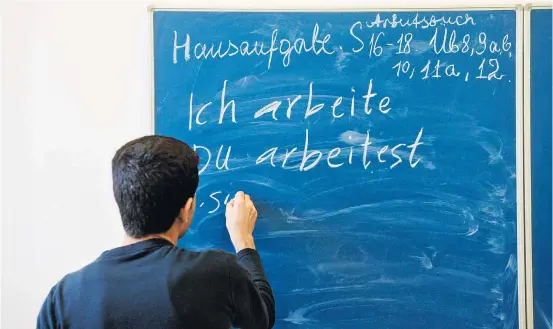 Arbeitsbuch
Hausaufgabe. S 16-18 Üb 8, 9ab,
10, 11a, 12.
Ich arbeite
Du arbeitest